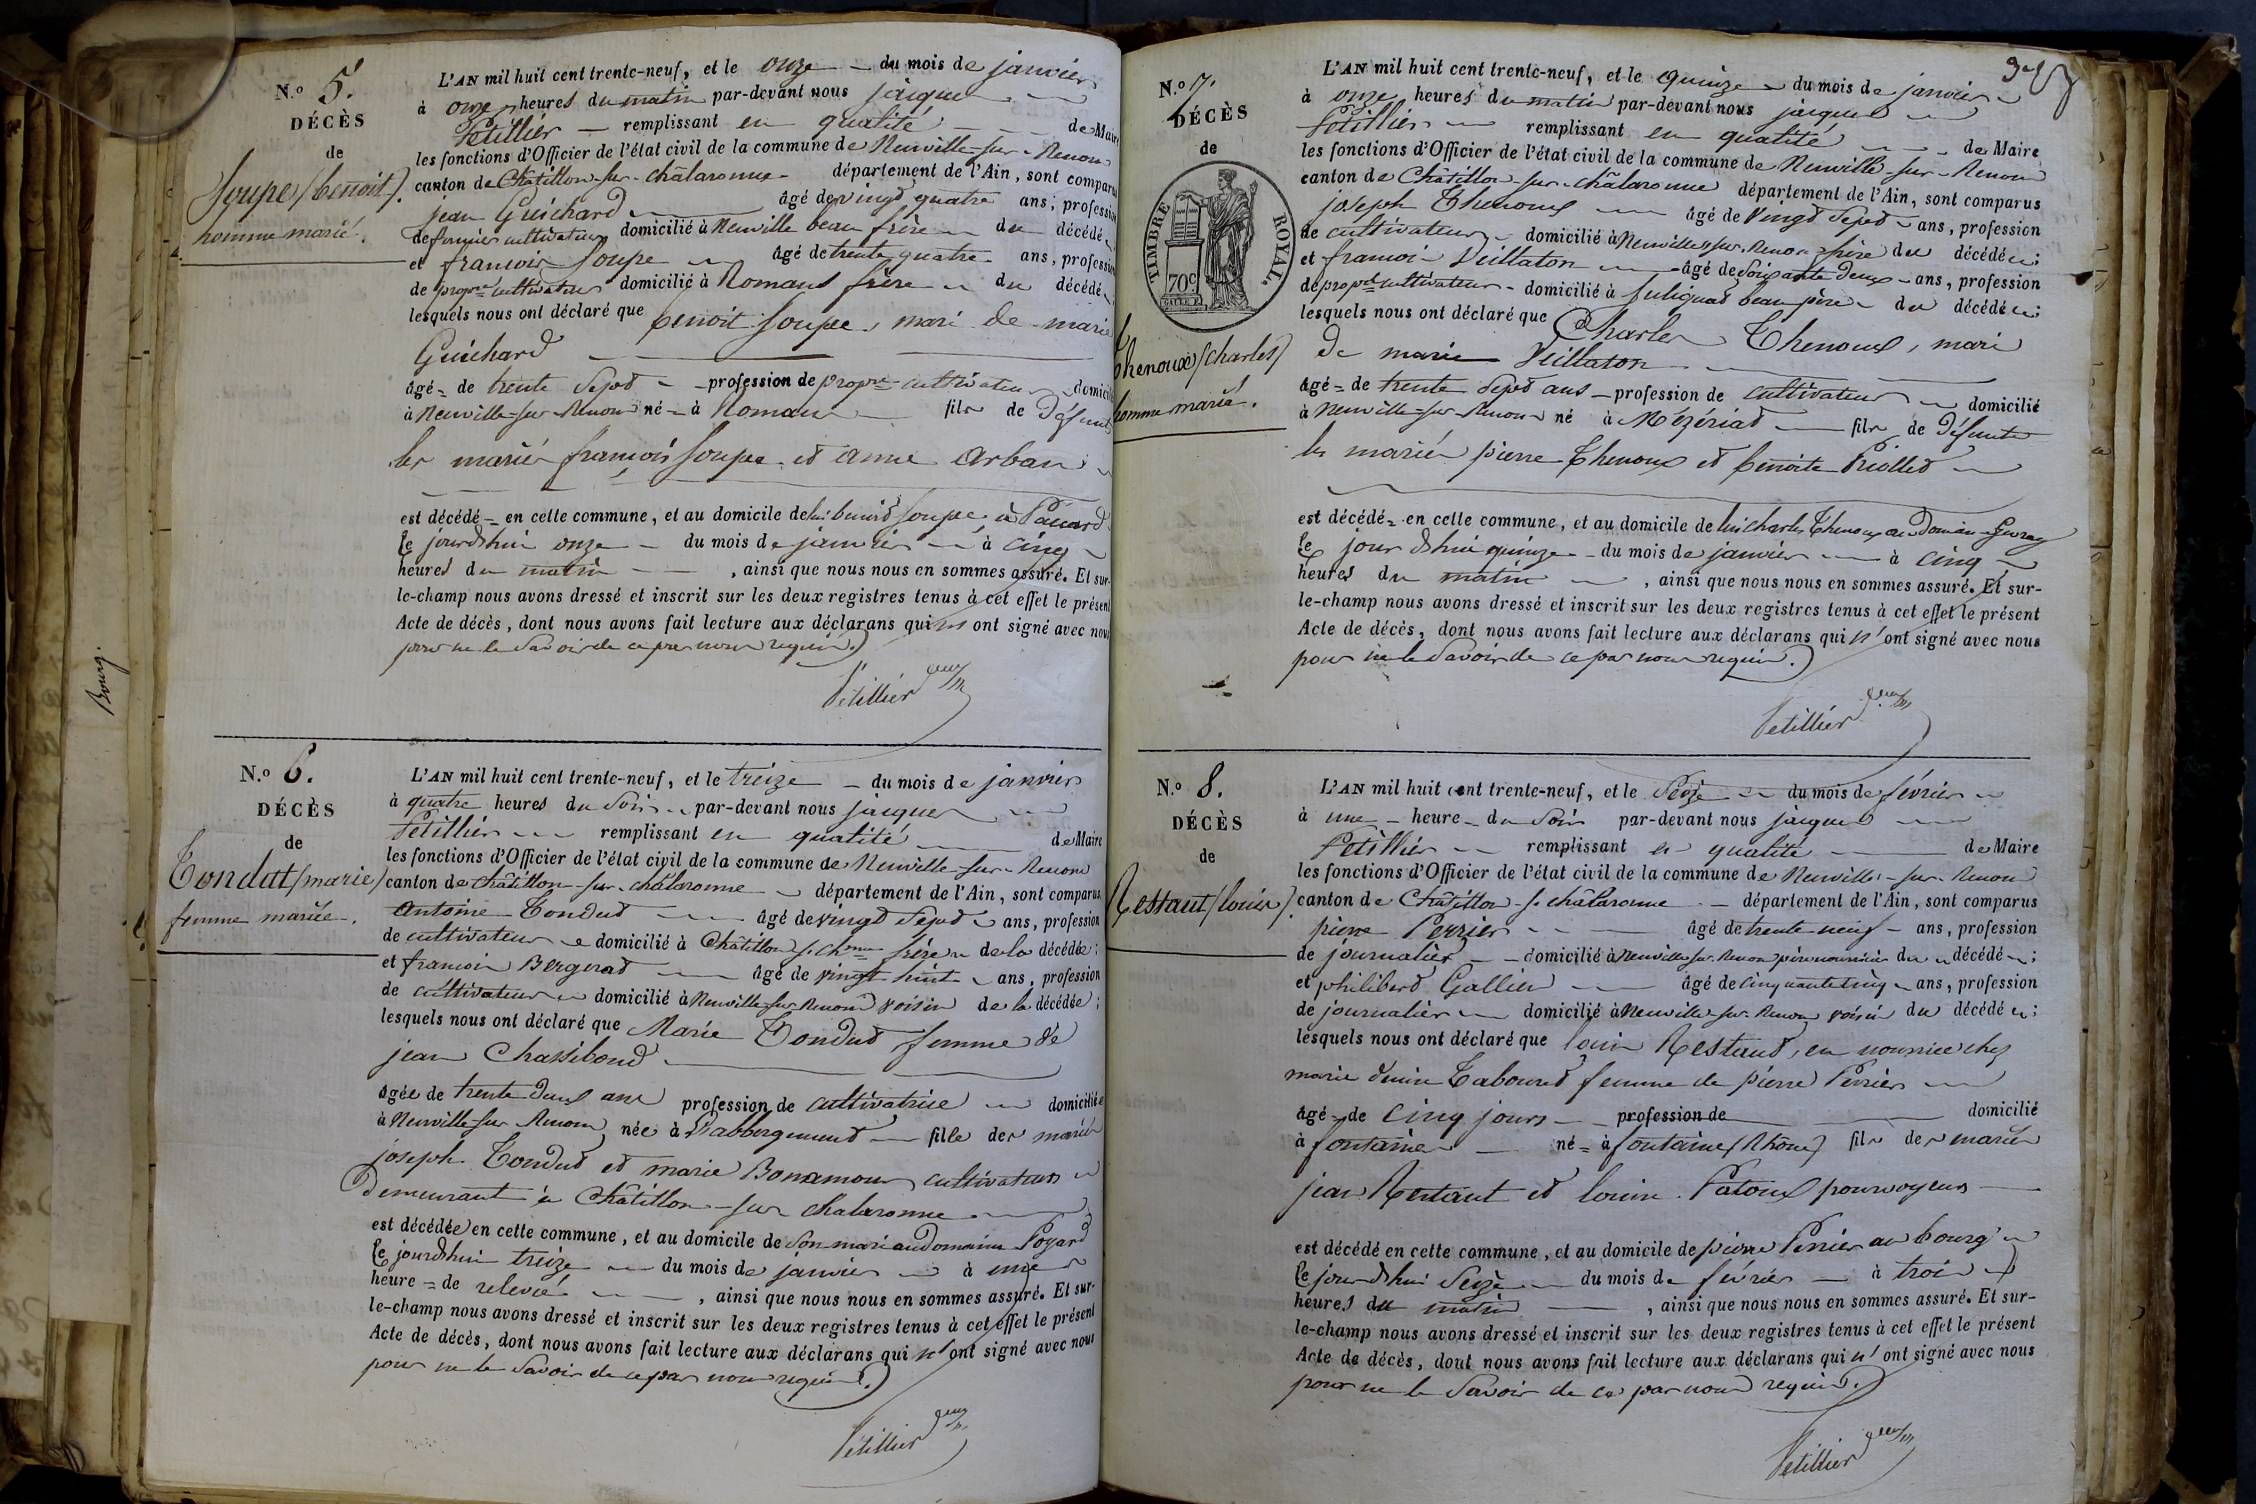 Bourg.
N.º 5.
DÉCÈS
de
Soupe (benoit).
homme marié.
L'AN mil huit cent trente-neuf, et le onze du mois de janvier
à onze heures du matin par-devant nous jacques
Petillier remplissant en qualité de Maire
les fonctions d'Officier de l'état civil de la commune de Neuville-sur-Renom
canton de Châtillon-sur-châlaronne département de l'Ain, sont comparus
jean Guichard âgé de vingt quatre ans, profession
de fermier cultivateur domicilié à Neuville beau frère du décédé
et francois Soupe âgé de trente quatre ans, profession
de propre cultivateur domicilié à Romans frère du décédé
lesquels nous ont déclaré que benoit Soupe, mari de marie
Guichard
âgé de trente Sept profession de propre cultivateur domicilié
à Neuville-sur-Renom né à Romans fils de Défunts
les mariés françois Soupe et anne arban
est décédé en cette commune, et au domicile de lui benoit Soupe à
le jourdhui onze du mois de janvier à cinq
heures du matin, ainsi que nous nous en sommes assuré. Et sur-
le-champ nous avons dressé et inscrit sur les deux registres tenus à cet effet le présent
Acte de décès, dont nous avons fait lecture aux déclarans qui n' ont signé avec nous
pour ne le Savoir de ce par nous requis.
Petillier
N.º 6.
DÉCÈS
de
Tondut (marie)
femme mariée.
L'AN mil huit cent trente-neuf, et le treize du mois de janvier
à quatre heures du Soir par-devant nous jacques
Petillier remplissant en qualité de Maire
les fonctions d'Officier de l'état civil de la commune de Neuville-sur-Renom
canton de châtillon-sur-châlaronne département de l'Ain, sont comparus
Antoine Tondut âgé de vingt Sept ans, profession
de cultivateur domicilié à Châtillon s. ch.nne frère de la décédée;
et francois Bergerat âgé de vingt huit ans, profession
de cultivateur domicilié à Neuville-sur-Renom voisin de la décédée;
lesquels nous ont déclaré que Marie Tondut femme de
jean Chassiboud
agée de trente deux ans profession de cultivatrice domiciliée
à Neuville-sur-Renom née à L'abbergement fille des mariés
joseph Tondut et marie Bonamour cultivateurs
demeurant à Châtillon-sur-chalaronne
est décédée en cette commune, et au domicile de Son mari au Domaine Poyard
le jourdhui treize du mois de janvier à une
heure de relevée, ainsi que nous nous en sommes assuré. Et sur-
le-champ nous avons dressé et inscrit sur les deux registres tenus à cet effet le présent
Acte de décès, dont nous avons fait lecture aux déclarans qui n' ont signé avec nous
pour ne le Savoir de ce par nous requis.
Petillier
N.º 7.
DÉCÈS
de
TIMBRE ROYAL.
70c
Thenoux (charles)
homme marié.
L'AN mil huit cent trente-neuf, et le quinze du mois de janvier
à onze heures du matin par-devant nous jacques
Petillier remplissant en qualité de Maire
les fonctions d'Officier de l'état civil de la commune de Neuville-sur-Renom
canton de Châtillon-sur-châlaronne département de l'Ain, sont comparus
joseph Thenoux âgé de vingt Sept ans, profession
de cultivateur domicilié à Neuville sur Renom frère du décédé;
et francois Veillaton âgé de Soixante deux ans, profession
de propre cultivateur domicilié à Sulignat beau père du décédé;
lesquels nous ont déclaré que Charles Thenoux, mari
de marie Veillaton
âgé de trente Sept ans profession de cultivateur domicilié
à Neuville-sur-Renom né à Mézériat fils de Défunts
les mariés pierre Thenoux et benoite Priollet
est décédé en cette commune, et au domicile de lui charles Thenoux au Domaine
le jour dhui quinze du mois de janvier à cinq
heures du matin, ainsi que nous nous en sommes assuré. Et sur-
le-champ nous avons dressé et inscrit sur les deux registres tenus à cet effet le présent
Acte de décès, dont nous avons fait lecture aux déclarans qui n' ont signé avec nous
pour ne le Savoir de ce par nous requis.
Petillier
N.º 8.
DÉCÈS
de
Restaut (louis).
L'AN mil huit cent trente-neuf, et le Seize du mois de février
à une heure du Soir par-devant nous jacques
Petillier remplissant en qualité de Maire
les fonctions d'Officier de l'état civil de la commune de Neuville-sur-Renom
canton de Châtillon-s-châlaronne département de l'Ain, sont comparus
pierre Perrier âgé de trente neuf ans, profession
de journalier domicilié à Neuville sur Renom père nourricier du décédé;
et philibert Gallien âgé de cinquante cinq ans, profession
de journalier domicilié à Neuville-sur-Renom voisin du décédé;
lesquels nous ont déclaré que louis Restaut, en nourrice chez
marie Tabouret femme de pierre Perrier
âgé de cinq jours profession de domicilié
à fontaines né à fontaine (Rhône) fils des mariés
jean Restaut et louise Patoux pourvoyeurs
est décédé en cette commune, et au domicile de pierre Perrier au bourg
le jourdhui Seize du mois de février à trois
heures du matin, ainsi que nous nous en sommes assuré. Et sur-
le-champ nous avons dressé et inscrit sur les deux registres tenus à cet effet le présent
Acte de décès, dont nous avons fait lecture aux déclarans qui n' ont signé avec nous
pour ne le Savoir de ce par nous requis.
Petillier